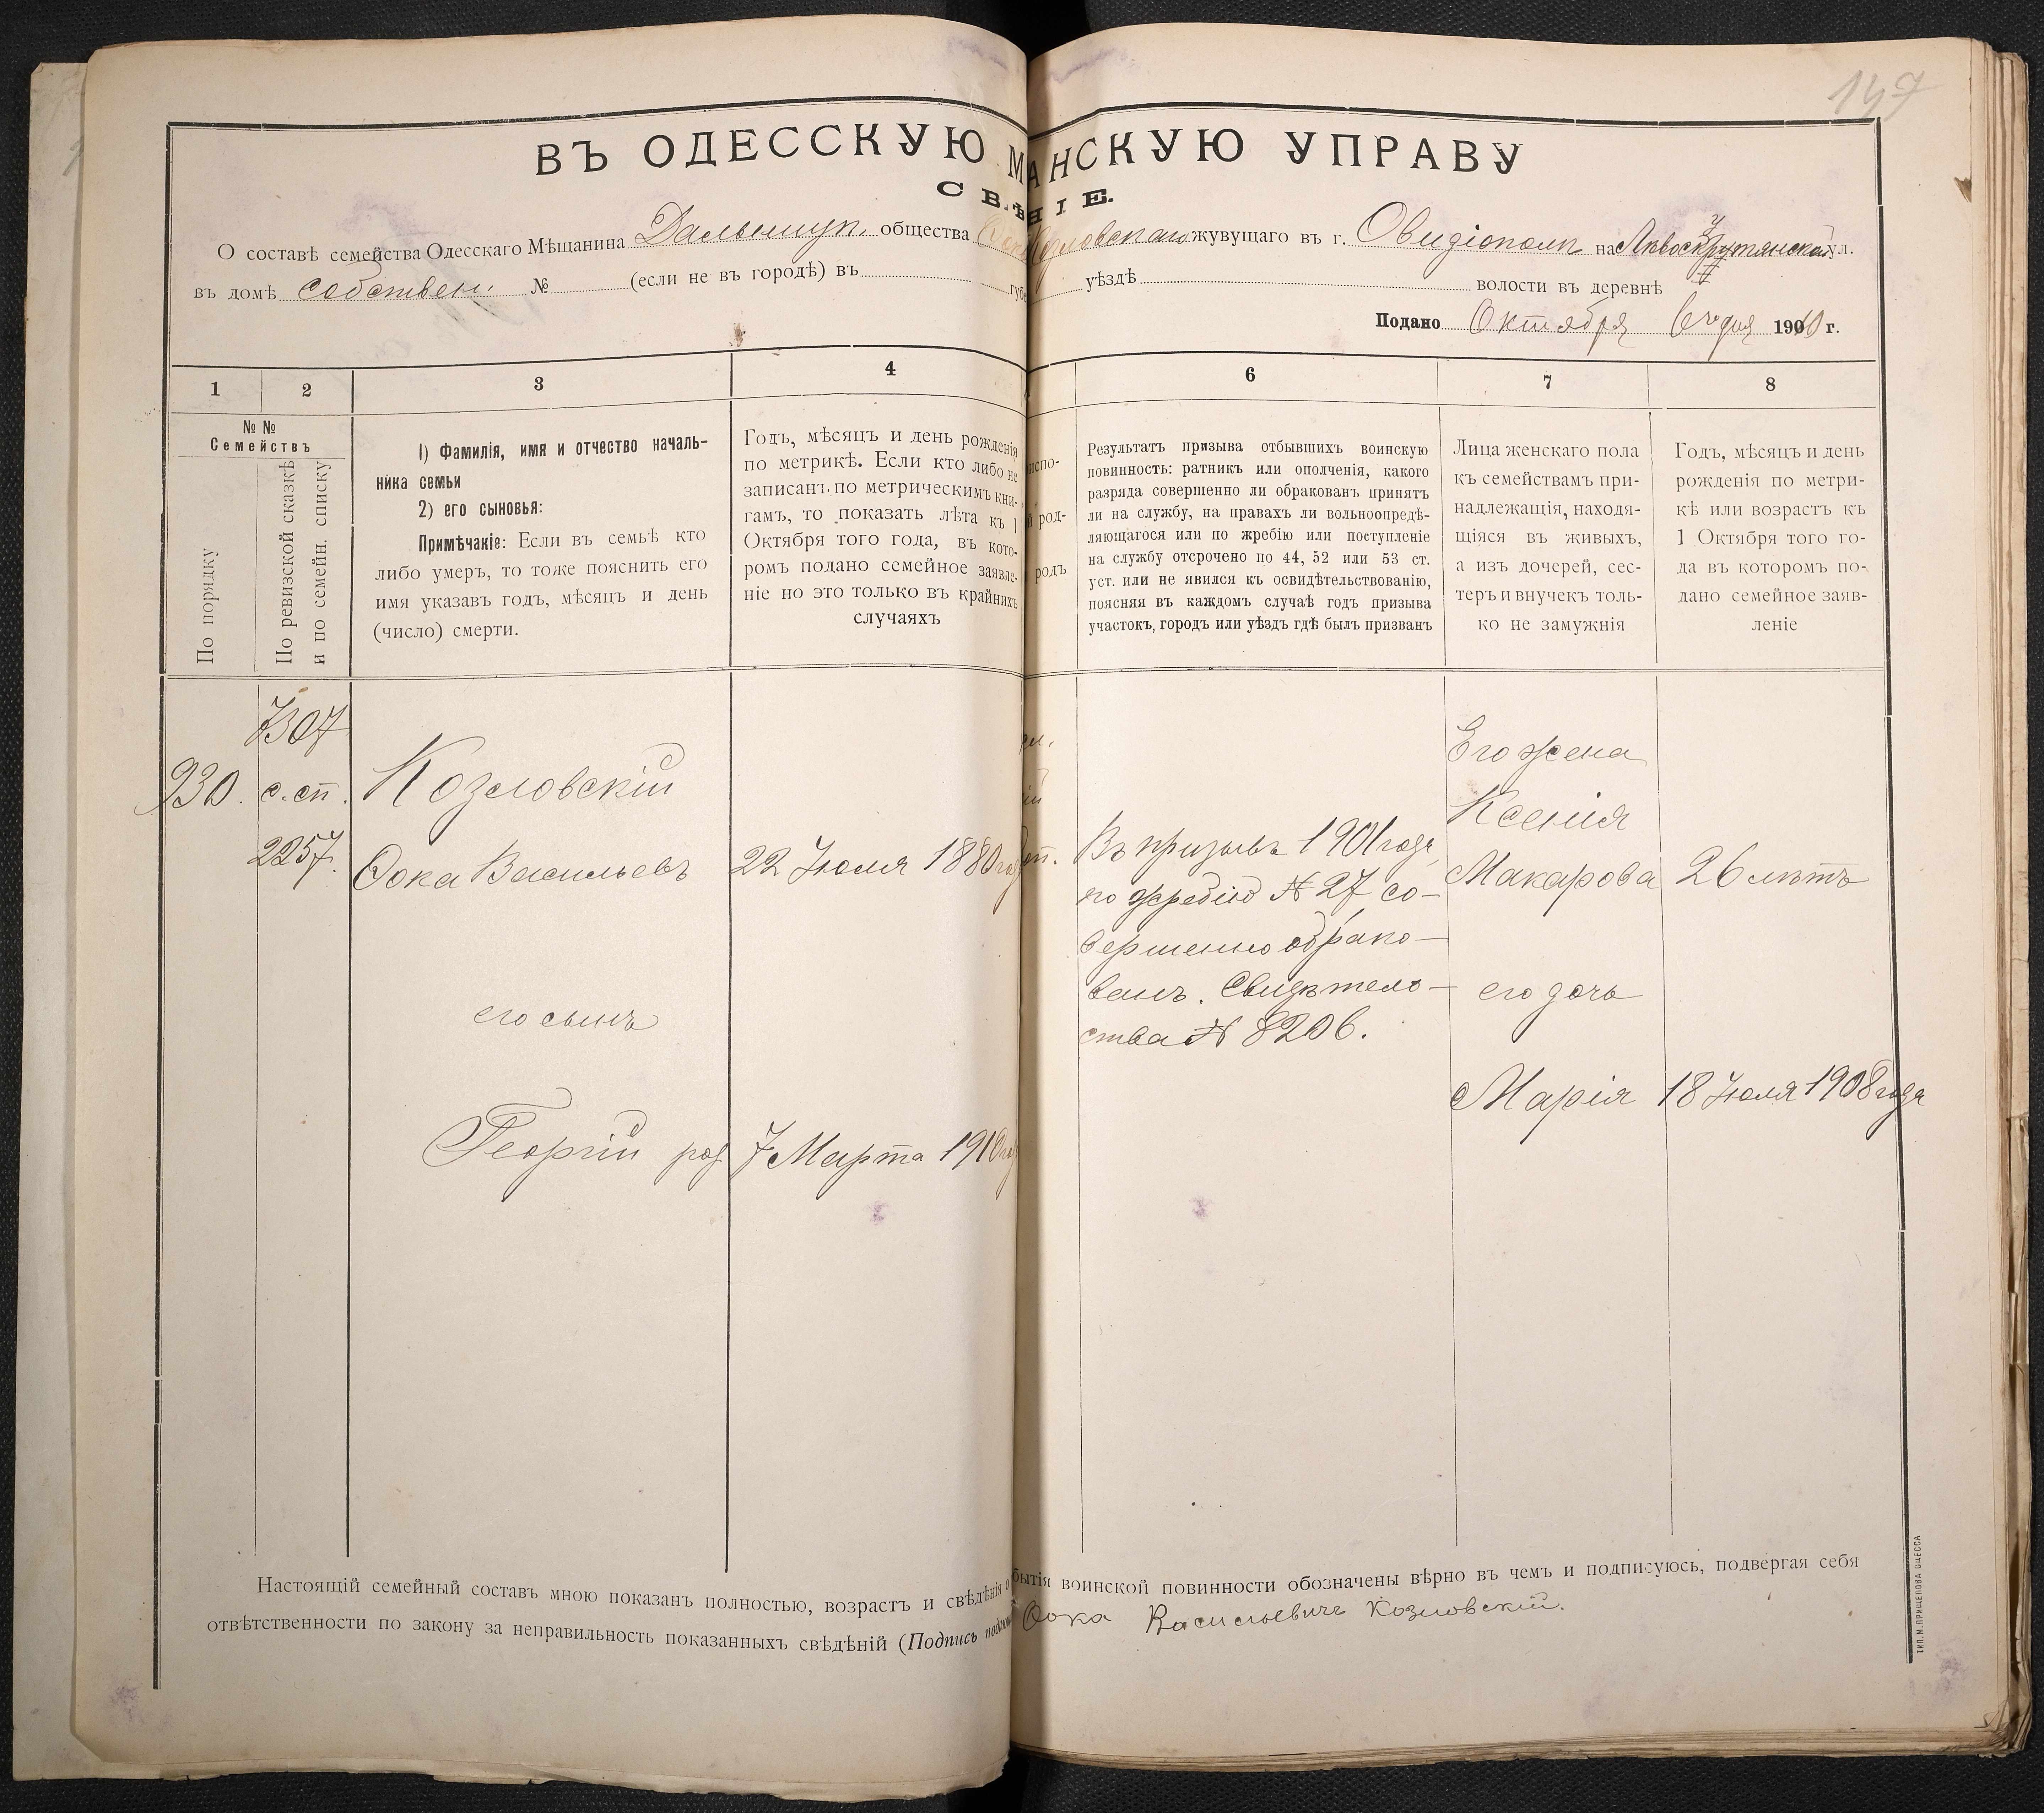 147
ВЪ ОДЕССКУЮ М АНСКУЮ УПРАВУ
СВѢ НІЕ.
О составѣ семейства Одесскаго Мѣщанина Дальницк. общества Козловскаго жувущаго въ г. Овидіополь на ул.
въ домѣ собствен. № (если не въ городѣ) въ губе уѣздѣ волости въ деревнѣ
Подано Октября 6го дня 1910 г.
1 2 3 4 6 7 8
№ №
Семействъ
По порядку
По ревизской сказкѣ
и по семейн. списку
1) Фамилія, имя и отчество началь-
ника семьи
2) его сыновья:
Примѣчакіе: Если въ семьѣ кто
либо умеръ, то тоже пояснить его
имя указавъ годъ, мѣсяцъ и день
(число) смерти.
Годъ, мѣсяцъ и день рожденія
по метрикѣ. Если кто либо не
записанъ по метрическимъ кни-
гамъ, то показать лѣта къ 1
Октября того года, въ кото-
ромъ подано семейное заявле-
ніе но это только въ крайнихъ
случаяхъ
испо-
й род-
родъ
Результатъ призыва отбывшихъ воинскую
повинность: ратникъ или ополченія, какого
разряда совершенно ли обракованъ принятъ
ли на службу, на правахъ ли вольноопредѣ-
ляющагося или по жребію или поступленіе
на службу отсрочено по 44, 52 или 53 ст.
уст. или не явился къ освидѣтельствованію,
поясняя въ каждомъ случаѣ годъ призыва
участокъ, городъ или уѣздъ гдѣ былъ призванъ
Лица женскаго пола
къ семействамъ при-
надлежащія, находя-
щіяся въ живыхъ,
а изъ дочерей, сес-
теръ и внучекъ толь-
ко не замужнія
Годъ, мѣсяцъ и день
рожденія по метри-
кѣ или возрастъ къ
1 Октября того го-
да въ которомъ по-
дано семейное заяв-
леніе
930.
7307
с. сп.
2257.
Козловскій
Ѳока Васильевъ 22 Іюля 1880 го
его сынъ
Георгій род 7 Марта 1910
Въ призывъ 1901 года,
по жребію № 27 со-
вершенно обрако-
ванъ. Свидѣтель-
ства № 8206.
Его жена
Ксенія
Макарова 26 лѣтъ
его дочь
Марія 18 Іюля 1908 года
Настоящій семейный составъ мною показанъ полностью, возрастъ и свѣдѣнія о бытія воинской повинности обозначены вѣрно въ чемъ и подписуюсь, подвергая себя
отвѣтственности по закону за неправильность показанныхъ свѣдѣній (Подпись Ѳока Васильевичъ Козловскій.
ТИП. М. ПРИЩЕПОВА ОДЕССА